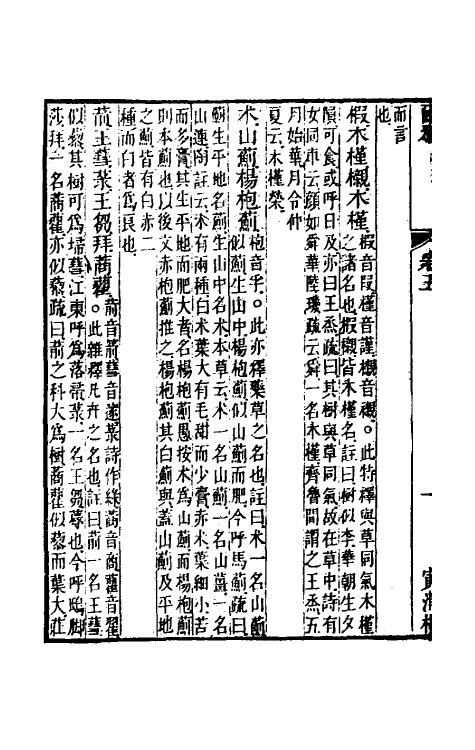 而言
也
椵木槿櫬木槿椵音叚槿音謹櫬音襯。此特釋與草同氣木槿
之諸名也椵櫬皆木槿名註曰樹似李華朝生夕
隕可食或呼日及亦曰王蒸疏曰其樹與草同氣故在草中詩有
女同車云顏如舜華陸璣疏云舜一名木槿齊魯間謂之王蒸五
月始華月令仲
夏云木槿榮
朮山薊楊枹薊枹音孚。此亦釋藥草之名也註曰朮一名山薊
似薊生山中楊枹薊似山薊而肥今呼馬薊疏曰
薊生平地名薊生山中名朮本草云朮一名山薊一名山薑一名
山連陶註云朮有兩種白朮葉大有毛甜而少膏赤朮葉細小苦
而多膏其生平地而肥大者名楊枹薊愚按朮爲山薊而楊枹薊
則本薊也以後文赤枹薊推之楊枹薊其白薊與蓋山薊及平地
之薊皆有白赤二
種而白者爲良也
葥王蔧菉王芻拜蔏藋葥音箭蔧音遂菉詩作綠蔏音商藋音翟
。此雜釋凡卉之名也註曰葥一名王蔧
似藜其樹可爲埽蔧江東呼爲落帚菉一名王芻蓐也今呼鴟脚
莎拜一名蔏藋亦似藜疏曰葥之科大爲樹蔏藋似藜而葉大莊
卷五
一